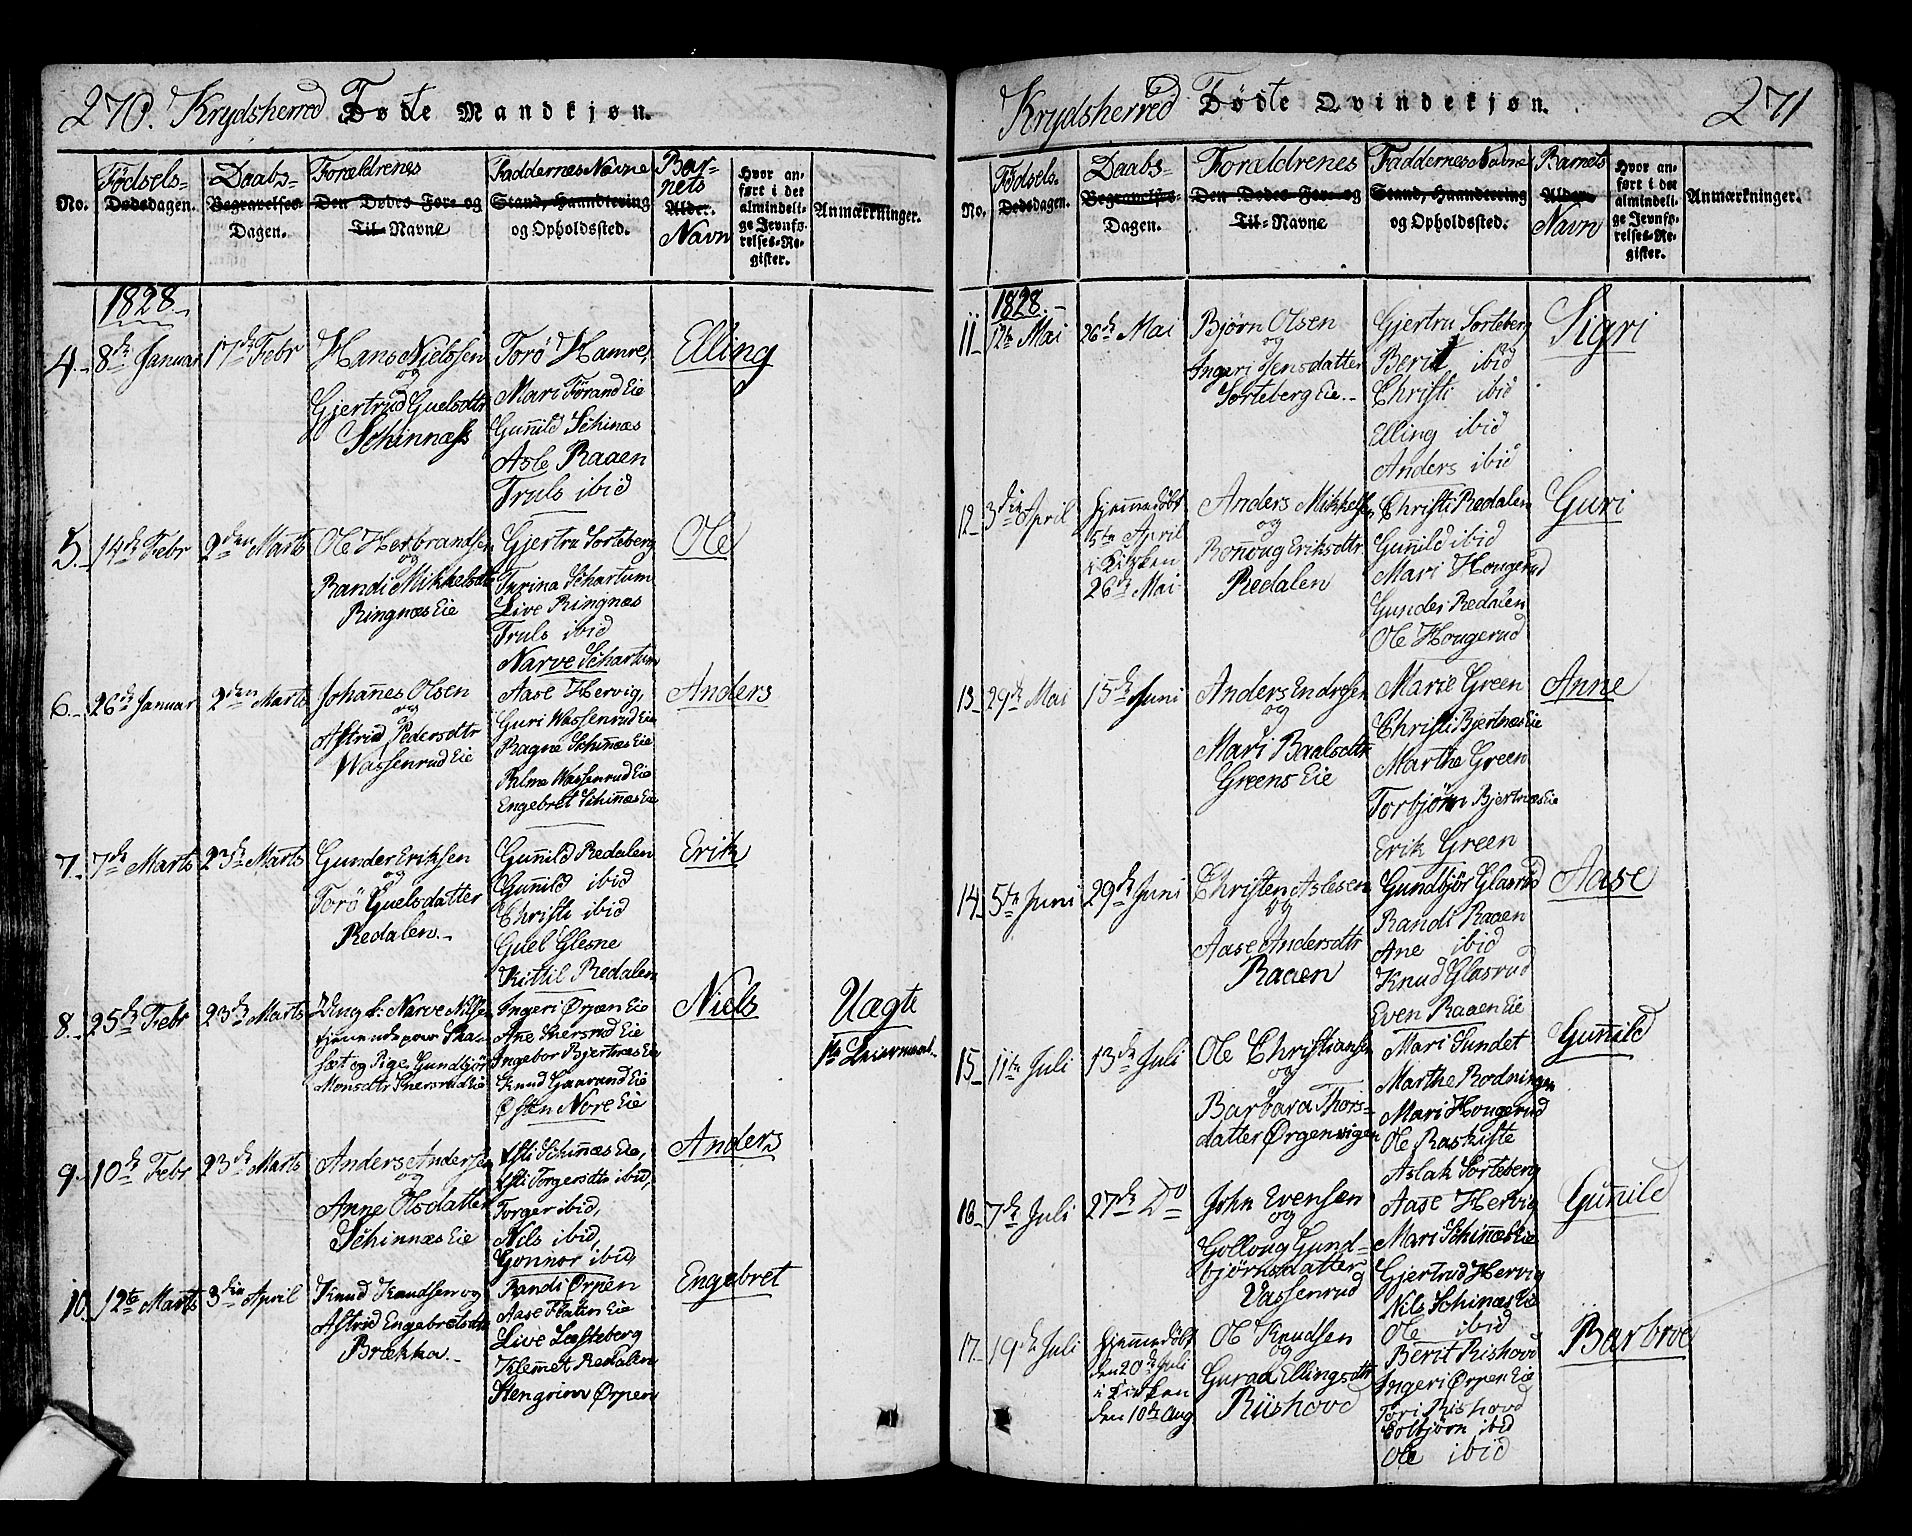 270. Krydsherred Fødte Mandkjøn.
No. Fødsels- Dødsdagen. Daabs- Begravelses- Dagen. Forældrenes Den Dødes For- og Til-Navne Faddernes Navne Stand, Haandtering og Opholdssted. Bar- nets Alder. Navn Hvor an- ført i det almindeli- ge Jevnfø- relses-Re- gister. Anmærkninger.
1828.
4. 8de Januar 17de Febr Hans Nielssen
og
Gjertrud Guelsdtr
Schinnæss
Torö Hamre,
Mari Förand Eie
Guñild Schinæs
Asle Raaen
Truls ibid
Elling
5. 14de Febr 2den Marts Ole Herbrandsen
og
Randi Mikkelsdtr
Ringnæs Eie
Gjertru Sorteberg
Turina Schartum
Live Ringnæs
Truls ibid
Narve Schartum
Ole
6. 26de Januar 2den Marts Johañes Olsen
og
Astrid Pedersdtr
Wassenrud Eie
Aase Hervig,
Guri Wassenrud Eie
Ragne Schiñæs Eie
Palme Wassenrud Eie
Engebret Schiñæs Eie
Anders
7. 7de Marts 23de Marts Gunder Eriksen
og
Torö Guelsdatter
Redalen.
Guñild Redalen
Guñild ibid
Christi ibid
Guel Glesne
Kittil Redalen
Erik
8. 25de Febr 23de Marts Ung k: Narve Nilsen
tjenende paa
og Pige Gundbjör
Monsdtr Snersrud Eie
Ingeri Ørpen Eie
Ane Snersrud Eie
Ingebor Bjertnæs Eie
Knud Gaarand Eie
Østen Nore Eie
Niels
Uægte
1te Leiermaal.
9. 10de Febr 23de Marts Anders Andersen
og
Anne Olsdatter
Schinnæs Eie
Asti Schinæs Eie,
Asti Torgersdtr ibid,
Torger ibid,
Nils ibid,
Gonnor ibid,
Anders
10. 12te Marts 3die April Knud Knudsen og
Astrid Engebretsdtr
Brækka.
Randi Ørpen
Aase Flaten Eie
Live Lesteberg
Klemet Redalen
Stengrim Ørpen
Engebret
Krydsherred Fødte Qvindekjøn. 271
No. Fødsels- Dødsdagen. Daabs- Begravelses- Dagen. Forældrenes Den Dødes For- og Til-Navne Faddernes Navne Stand, Haandtering og Opholdssted. Barnets Alder Navn Hvor an- ført i det almindeli- ge Jevnfø- relses-Re- gister. Anmærkninger.
1828.
11. 12te Mai 26de Mai Björn Olsen
og
Ingeri Jensdatter
Sorteberg Eie.
Gjertru Sorteberg
Berit ibid
Christi ibid
Elling ibid
Anders ibid
Sigri
12. 3die April Hjemmedöbt
5te April
i Kirken
26de Mai
Anders Mikkelsen
og
Roñoug Eriksdtr.
Redalen
Christi Redalen
Guñild ibid
Mari Hougerud
Gunder Redalen
Ole Hougerud
Guri
13. 29de Mai 15de Juni Anders Endresen
og
Mari Paalsdtr
Greens Eie
Marie Green
Christi Bjertnæs Eie
Marthe Green
Torbjörn Bjertnæs Eie
Erik Green
Anne
14. 5te Juni 29de Juni Christen Aslesen
og
Aase Andersdtr
Raaen
Gundbjör Glasrud
Randi Raaen
Ane ibid
Knud Glasrud
Even Raaen Eie
Aase
15. 11te Juli 13de Juli Ole Christiansen
og
Barbara Thors-
datter Ørgenvigen
Mari Sundet
Marthe Rodningen
Mari Hougerud
Ole Raskiste
Aslak Sorteberg
Guñild
16. 7de Juli 27de Do John Evensen
og
Golloug Gund-
björnsdatter
Vassenrud
Aase Hervig
Mari Schiñæs Eie
Gjertrud Hervig
Nils Schinæs Eie
Ole ibid
Guñild
17. 19de Juli Hjemmedöbt
den 20de Juli
i Kirken
den 10de Aug
Ole Knudsen
og
Guraa Ellingsdtr
Riishovd
Berit Rishovd
Ingeri Ørpen Eie
Tori Rishovd
Colbjörn ibid
Ole ibid
Barbroe